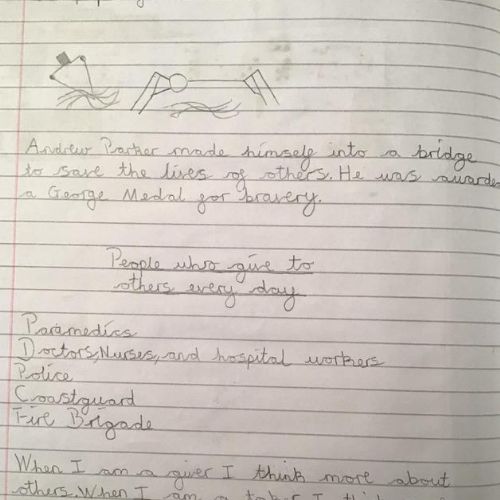 Andrew Parker made himself into a bridge
to save the lives of others. He was awarded
a George Medal for bravery.
People who give to
others every day
Paramedics
Doctors, Nurses, and hospital workers
Police
Coastguard
Fire Brigade
When I am a giver I think more about
others. When I am a taker I think